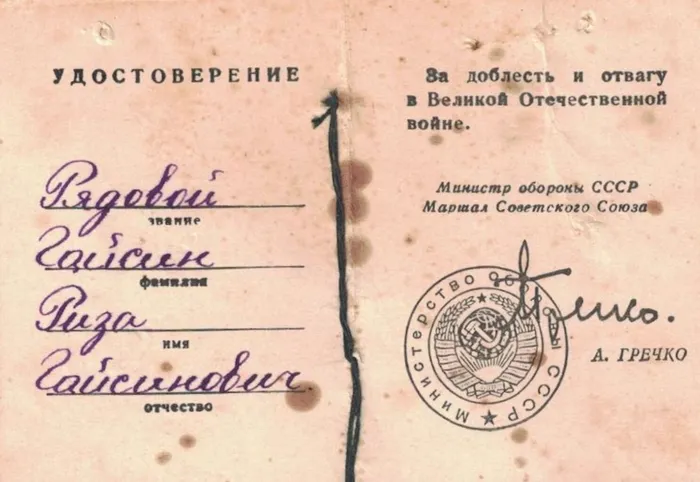 УДОСТОВЕРЕНИЕ
Рядовой
звание
Гайсин
фамилия
Риза
имя
Гайсинович
отчество
За доблесть и отвагу
в Великой Отечественной
войне.
Министр обороны СССР
Маршал Советского Союза
Министерство обороны СССР
Гречко.
А. ГРЕЧКО